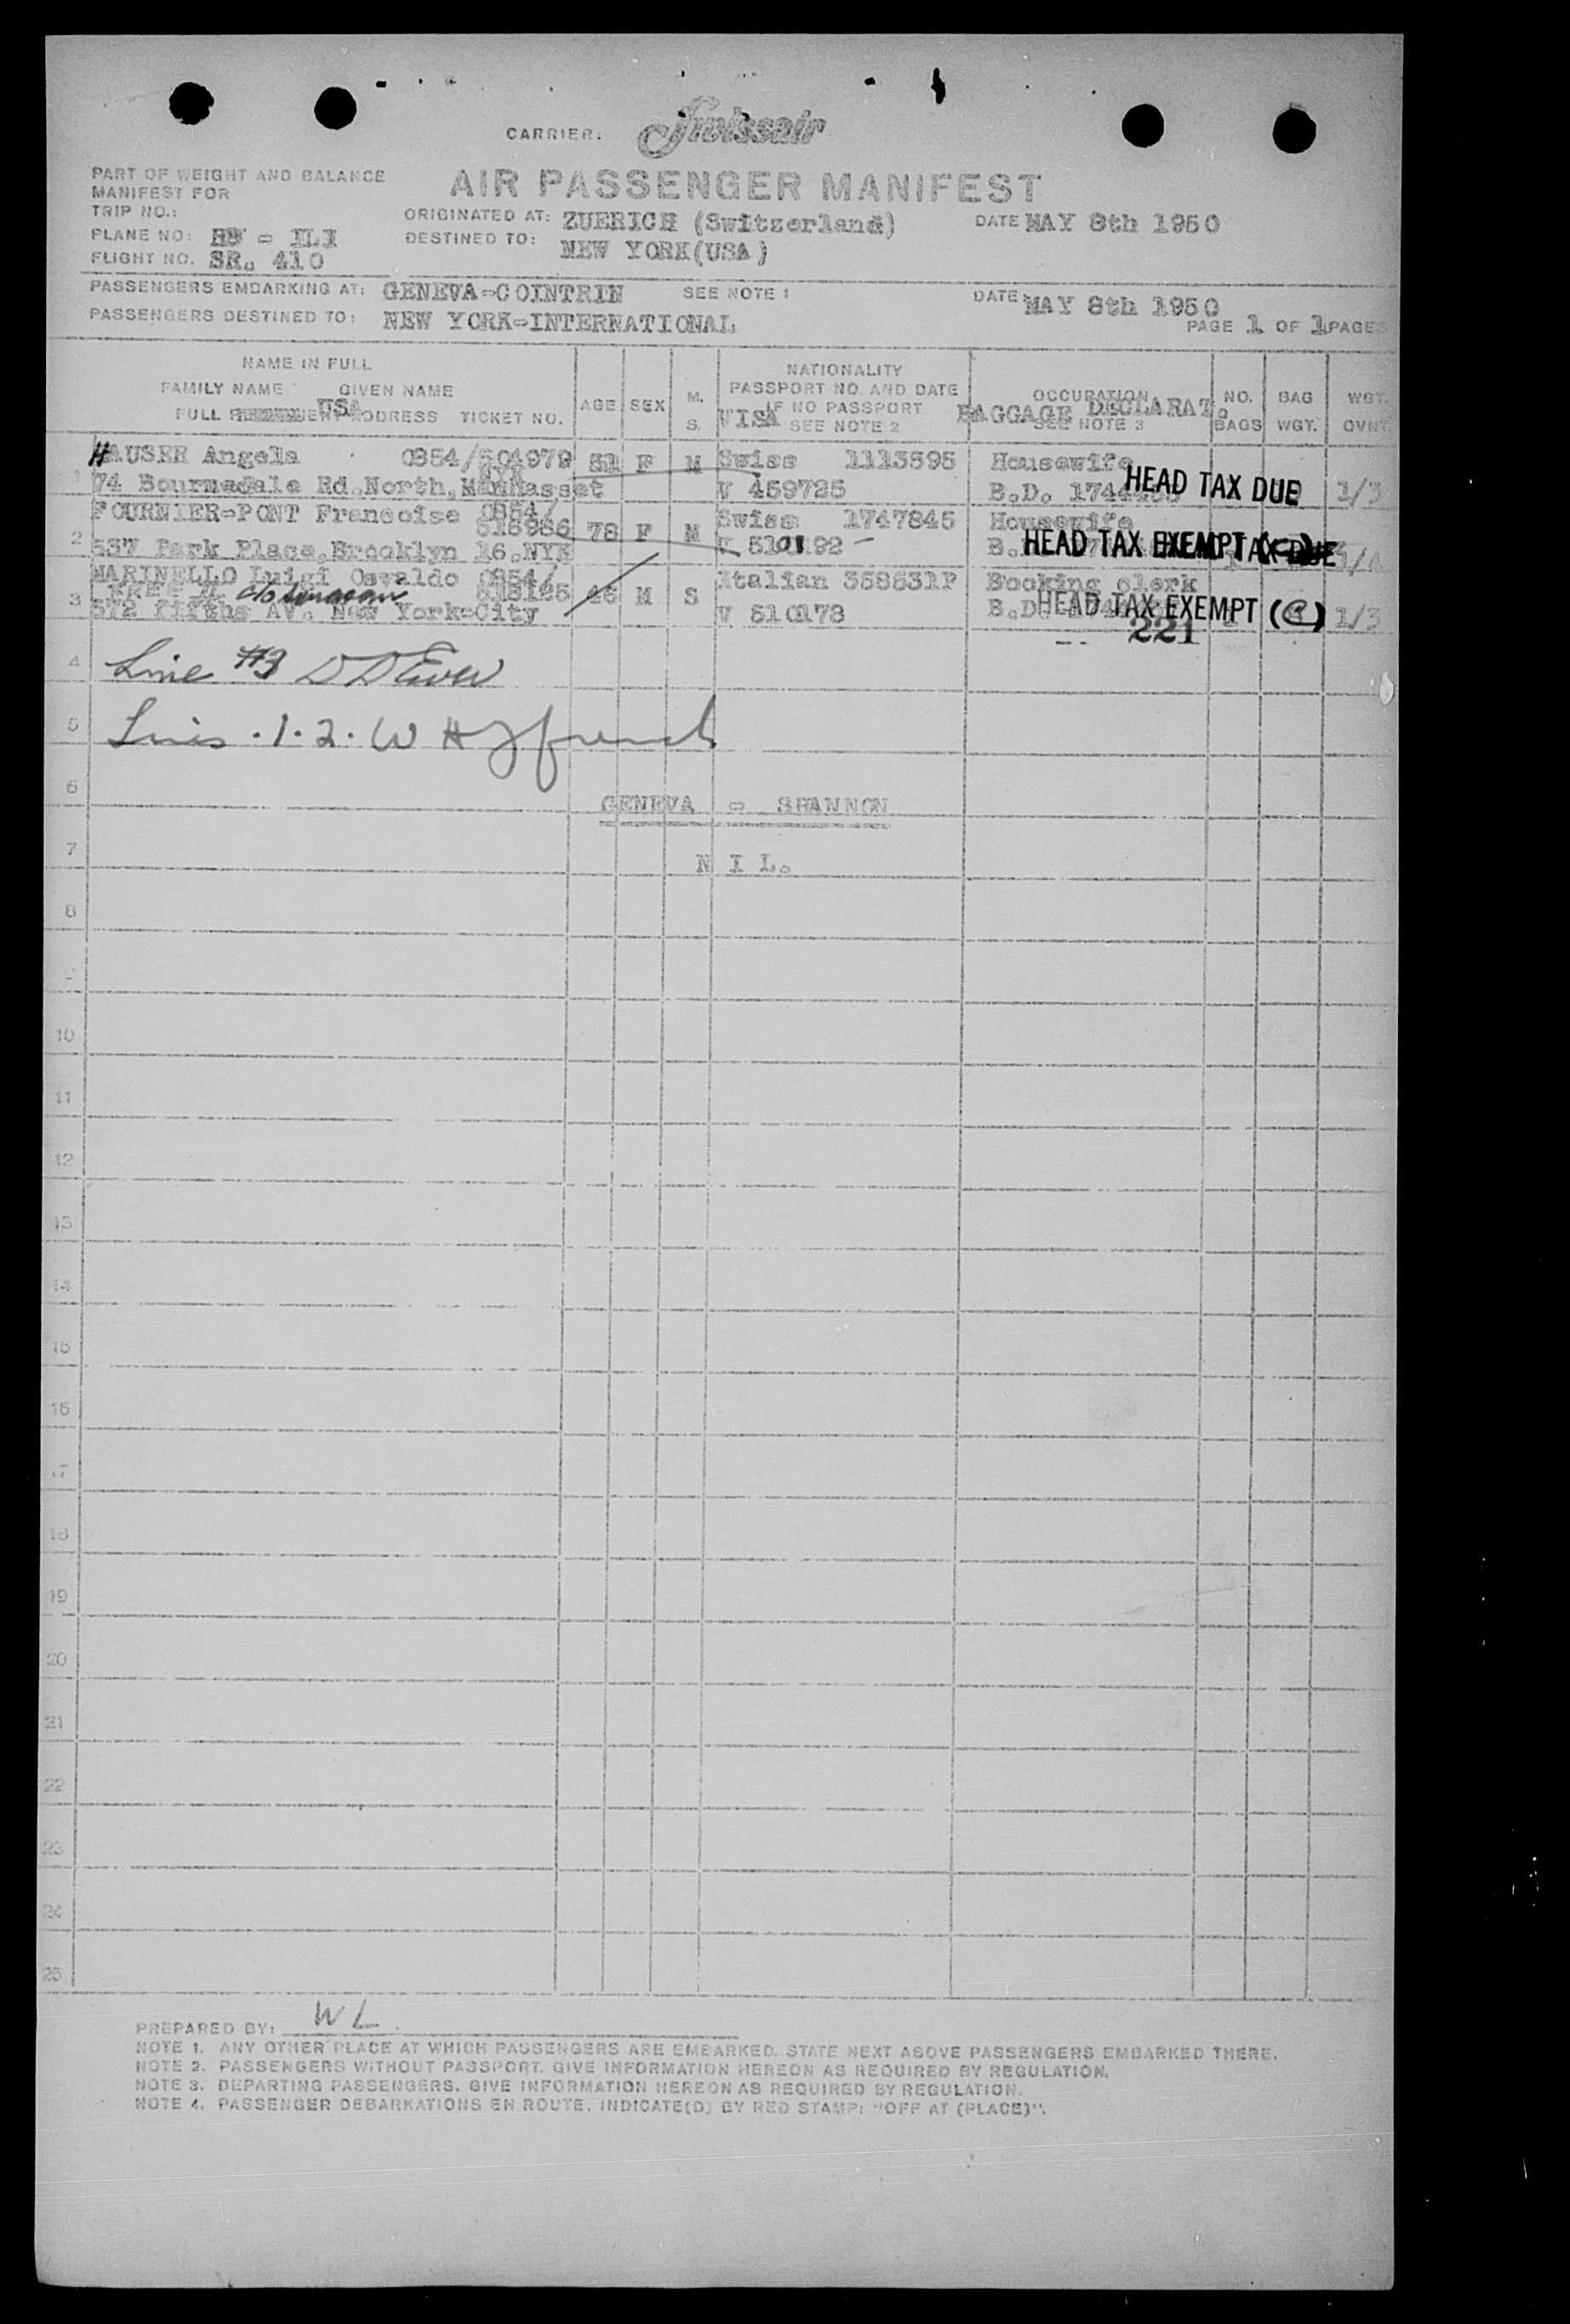 CARRIER: Swissair
PART OF WEIGHT AND BALANCE
MANIFEST FOR
AIR PASSENGER MANIFEST
TRIP NO.:
ORIGINATED AT: ZUERICH (Switzerland) DATE MAY 8th 1950
PLANE NO: HB - ILI
DESTINED TO: NEW YORK(USA)
FLIGHT NO. SR. 410
PASSENGERS EMBARKING AT: GENEVA-COINTRIN SEE NOTE 1 DATE: MAY 8th 1950
PASSENGERS DESTINED TO: NEW YORK-INTERNATIONAL PAGE 1 OF 1 PAGES
NAME IN FULL
FAMILY NAME GIVEN NAME
FULL USA ADDRESS TICKET NO.
AGE SEX M. S.
NATIONALITY
PASSPORT NO. AND DATE
IF NO PASSPORT
VISA SEE NOTE 2
OCCUPATION
BAGGAGE DECLARAT.
SEE NOTE 3
NO. BAGS
BAG WGT.
WGT. OVNT.
1 HAUSER Angela 0854/504979 F M Swiss 1113595 Housewife
74 Road North, Manhasset V 459725 B.D. HEAD TAX DUE 1/3
2 FOURNIER-PONT Francoise 0854/ 78 F M Swiss 1747845 Housewife
537 Park Place, Brooklyn 16.NYK HEAD TAX EXEMPT
3 MARINELLO Luigi Osvaldo 0854/ M S Italian 358531P Booking clerk
c/o
572 fifths AV. New York-City V 510178 B.D. HEAD TAX EXEMPT (C) 1/3
221
4 Line #3
5 Lines .1.2. W H French
6 GENEVA - SHANNON
7 N I L.
8
9
10
11
12
13
14
15
16
17
18
19
20
21
22
23
24
25
PREPARED BY: WL
NOTE 1. ANY OTHER PLACE AT WHICH PASSENGERS ARE EMBARKED. STATE NEXT ABOVE PASSENGERS EMBARKED THERE.
NOTE 2. PASSENGERS WITHOUT PASSPORT. GIVE INFORMATION HEREON AS REQUIRED BY REGULATION.
NOTE 3. DEPARTING PASSENGERS. GIVE INFORMATION HEREON AS REQUIRED BY REGULATION.
NOTE 4. PASSENGER DEBARKATIONS EN ROUTE. INDICATE(D) BY RED STAMP: "OFF AT (PLACE)".